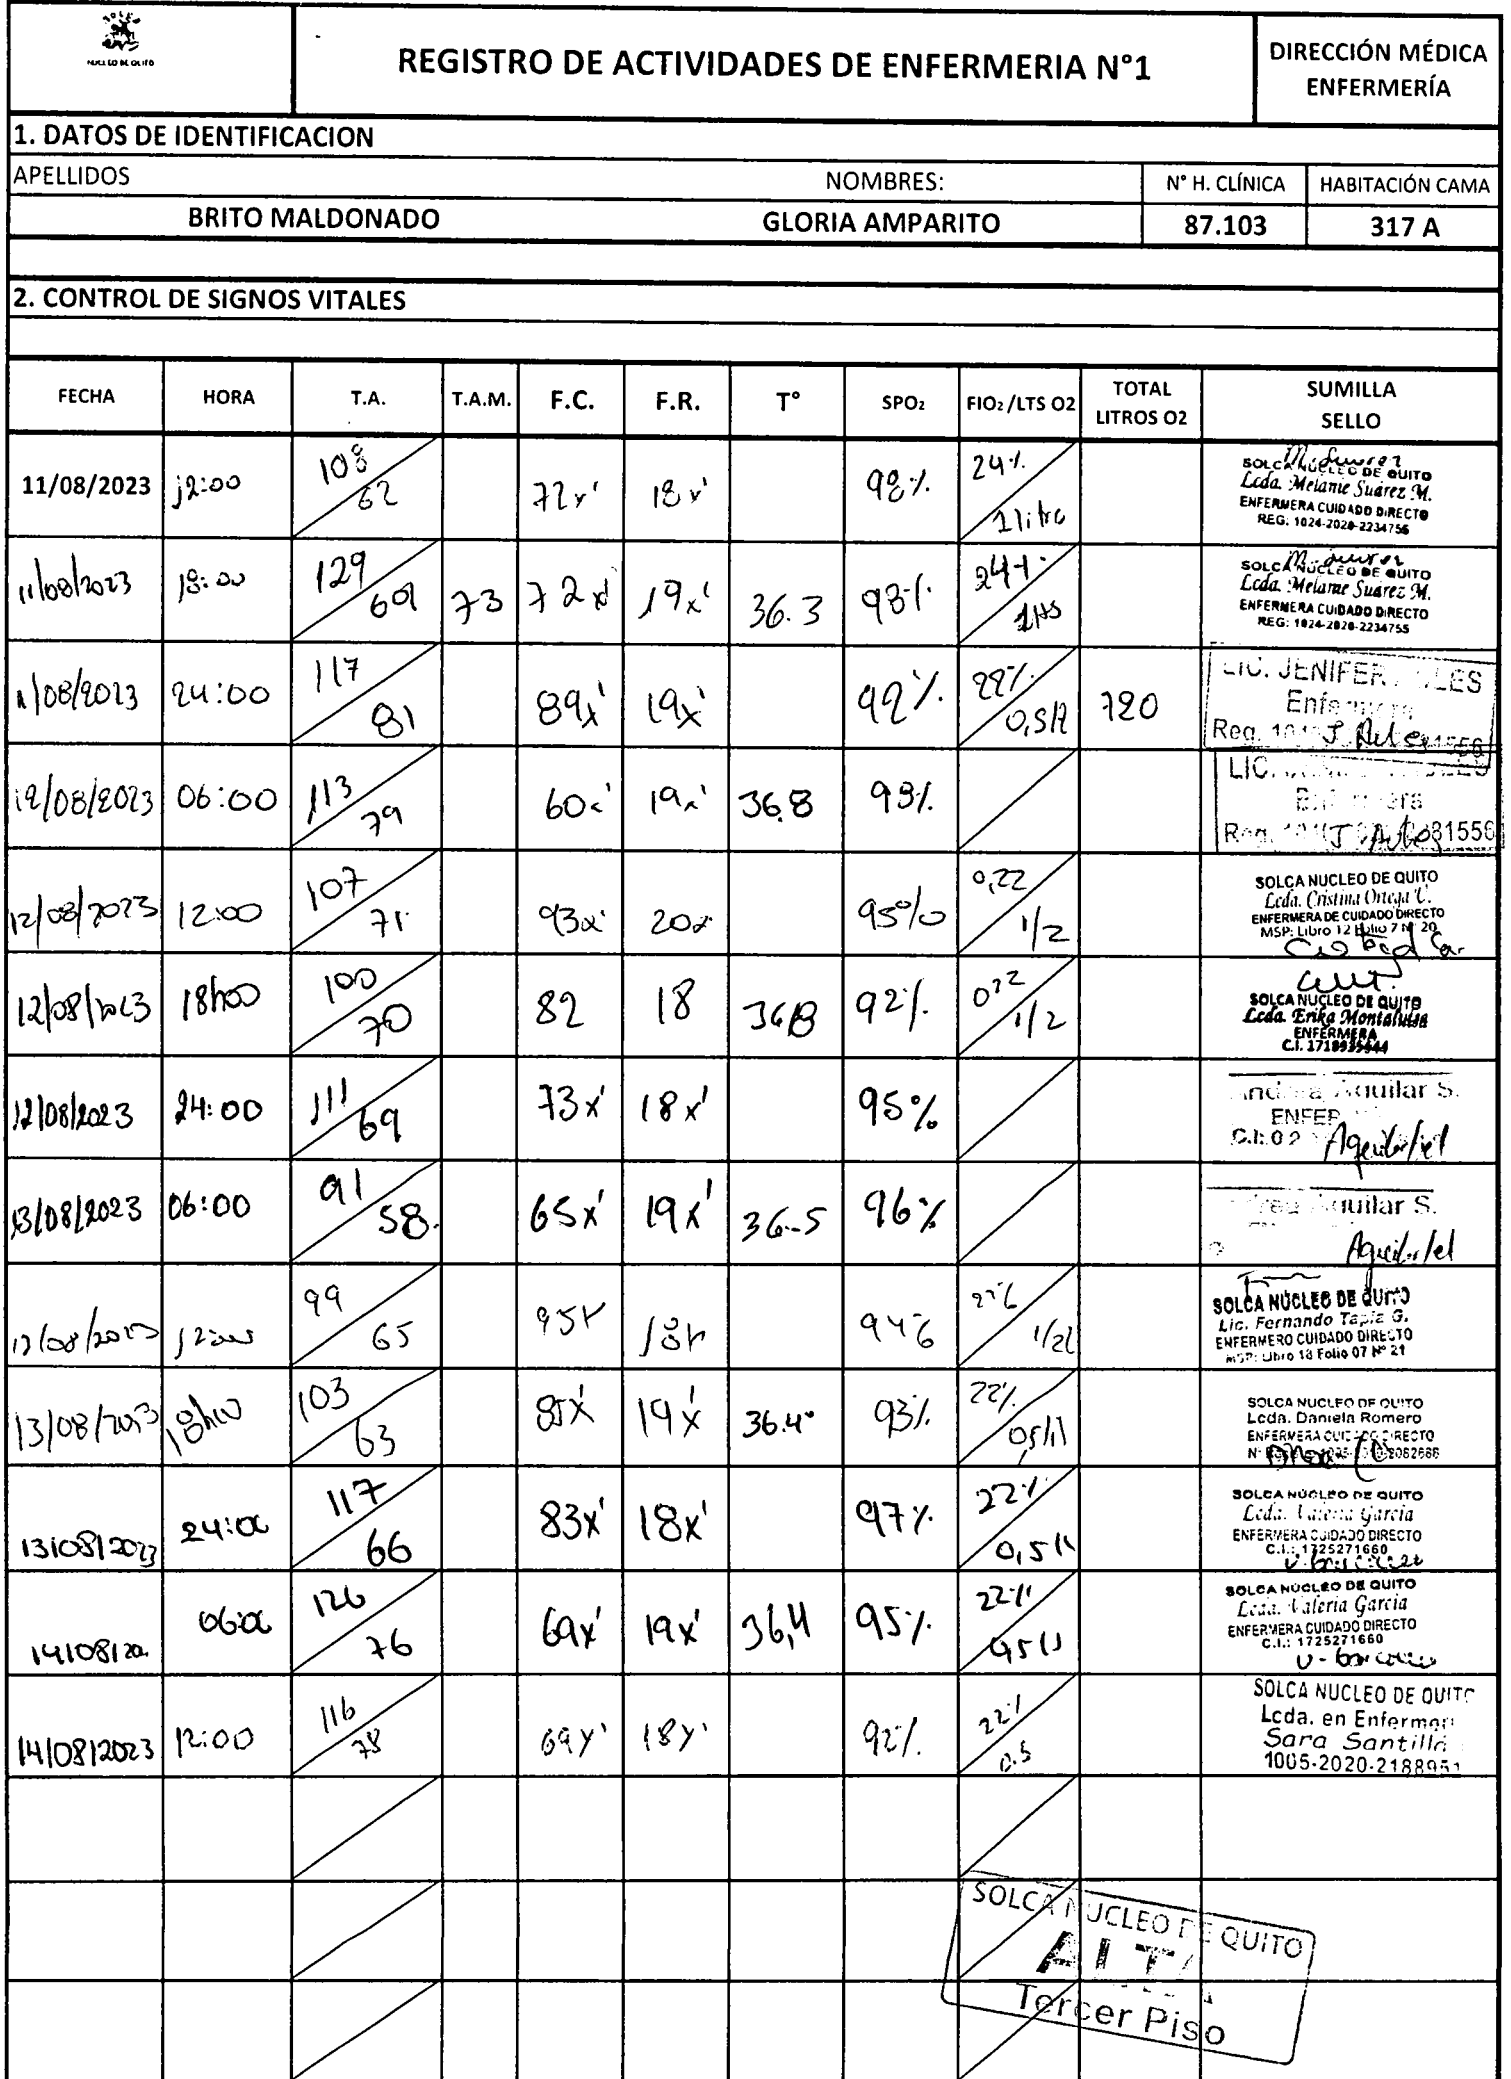 SOLCA
NUCLEO DE QUITO
REGISTRO DE ACTIVIDADES DE ENFERMERIA N°1
DIRECCIÓN MÉDICA
ENFERMERÍA
1. DATOS DE IDENTIFICACION
APELLIDOS NOMBRES: N° H. CLÍNICA HABITACIÓN CAMA
BRITO MALDONADO GLORIA AMPARITO 87.103 317 A
2. CONTROL DE SIGNOS VITALES
FECHA HORA T.A. T.A.M. F.C. F.R. T° SPO2 FIO2/LTS O2 TOTAL LITROS O2 SUMILLA SELLO
11/08/2023 12:00 108/62 72x' 18x' 98% 24% 1 litro
M. Suarez
SOLCA NUCLEO DE QUITO
Lcda. Melanie Suárez M.
ENFERMERA CUIDADO DIRECTO
REG: 1024-2020-2234756
11/08/2023 18:00 129/69 73 72x' 19x' 36.3 98% 24% 1lts
M. Suarez
SOLCA NUCLEO DE QUITO
Lcda. Melanie Suárez M.
ENFERMERA CUIDADO DIRECTO
REG: 1024-2020-2234755
11/08/2023 24:00 117/81 89x' 19x' 92% 22% 0,5lt 720
LIC. JENIFER
Enfermera
12/08/2023 06:00 113/79 60x' 19x' 36.8 93%
LIC.
12/08/2023 12:00 107/71 93x' 20x' 95% 0,22 1/2
SOLCA NUCLEO DE QUITO
Lcda. Cristina Ortega C.
ENFERMERA DE CUIDADO DIRECTO
MSP: Libro 12 Folio 7 N° 20
12/08/2023 18h00 100/70 82 18 36.8 92% 022 1/2
SOLCA NUCLEO DE QUITO
Lcda. Erika Montaluisa
ENFERMERA
C.I. 1718935644
12/08/2023 24:00 111/69 73x' 18x' 95%
Andrea Aguilar S.
13/08/2023 06:00 91/58 65x' 19x' 36.5 96%
Aguilar S.
13/08/2023 12:00 99/65 95x 18x 94% 1/2l
SOLCA NÚCLEO DE QUITO
Lic. Fernando Tapia G.
ENFERMERO CUIDADO DIRECTO
MSP: Libro 18 Folio 07 N° 21
13/08/2023 18h00 103/63 19x' 36.4° 93% 22% 0,5lt
SOLCA NUCLEO DE QUITO
Lcda. Daniela Romero
ENFERMERA CUIDADO DIRECTO
13/08/2023 24:00 117/66 83x' 18x' 97% 22% 0,5lt
SOLCA NÚCLEO DE QUITO
Lcda. Valeria García
ENFERMERA CUIDADO DIRECTO
C.I.: 1725271660
14/08/20 06:00 126/76 69x' 19x' 36,4 95% 22% 0,5lt
SOLCA NÚCLEO DE QUITO
Lcda. Valeria García
ENFERMERA CUIDADO DIRECTO
C.I.: 1725271660
14/08/2023 12:00 116/78 69x' 18x' 92% 22% 0.5
SOLCA NUCLEO DE QUITO
Lcda. en Enfermerí
Sara Santillá
1005-2020-2188951
SOLCA NUCLEO DE QUITO
ALTA
Tercer Piso